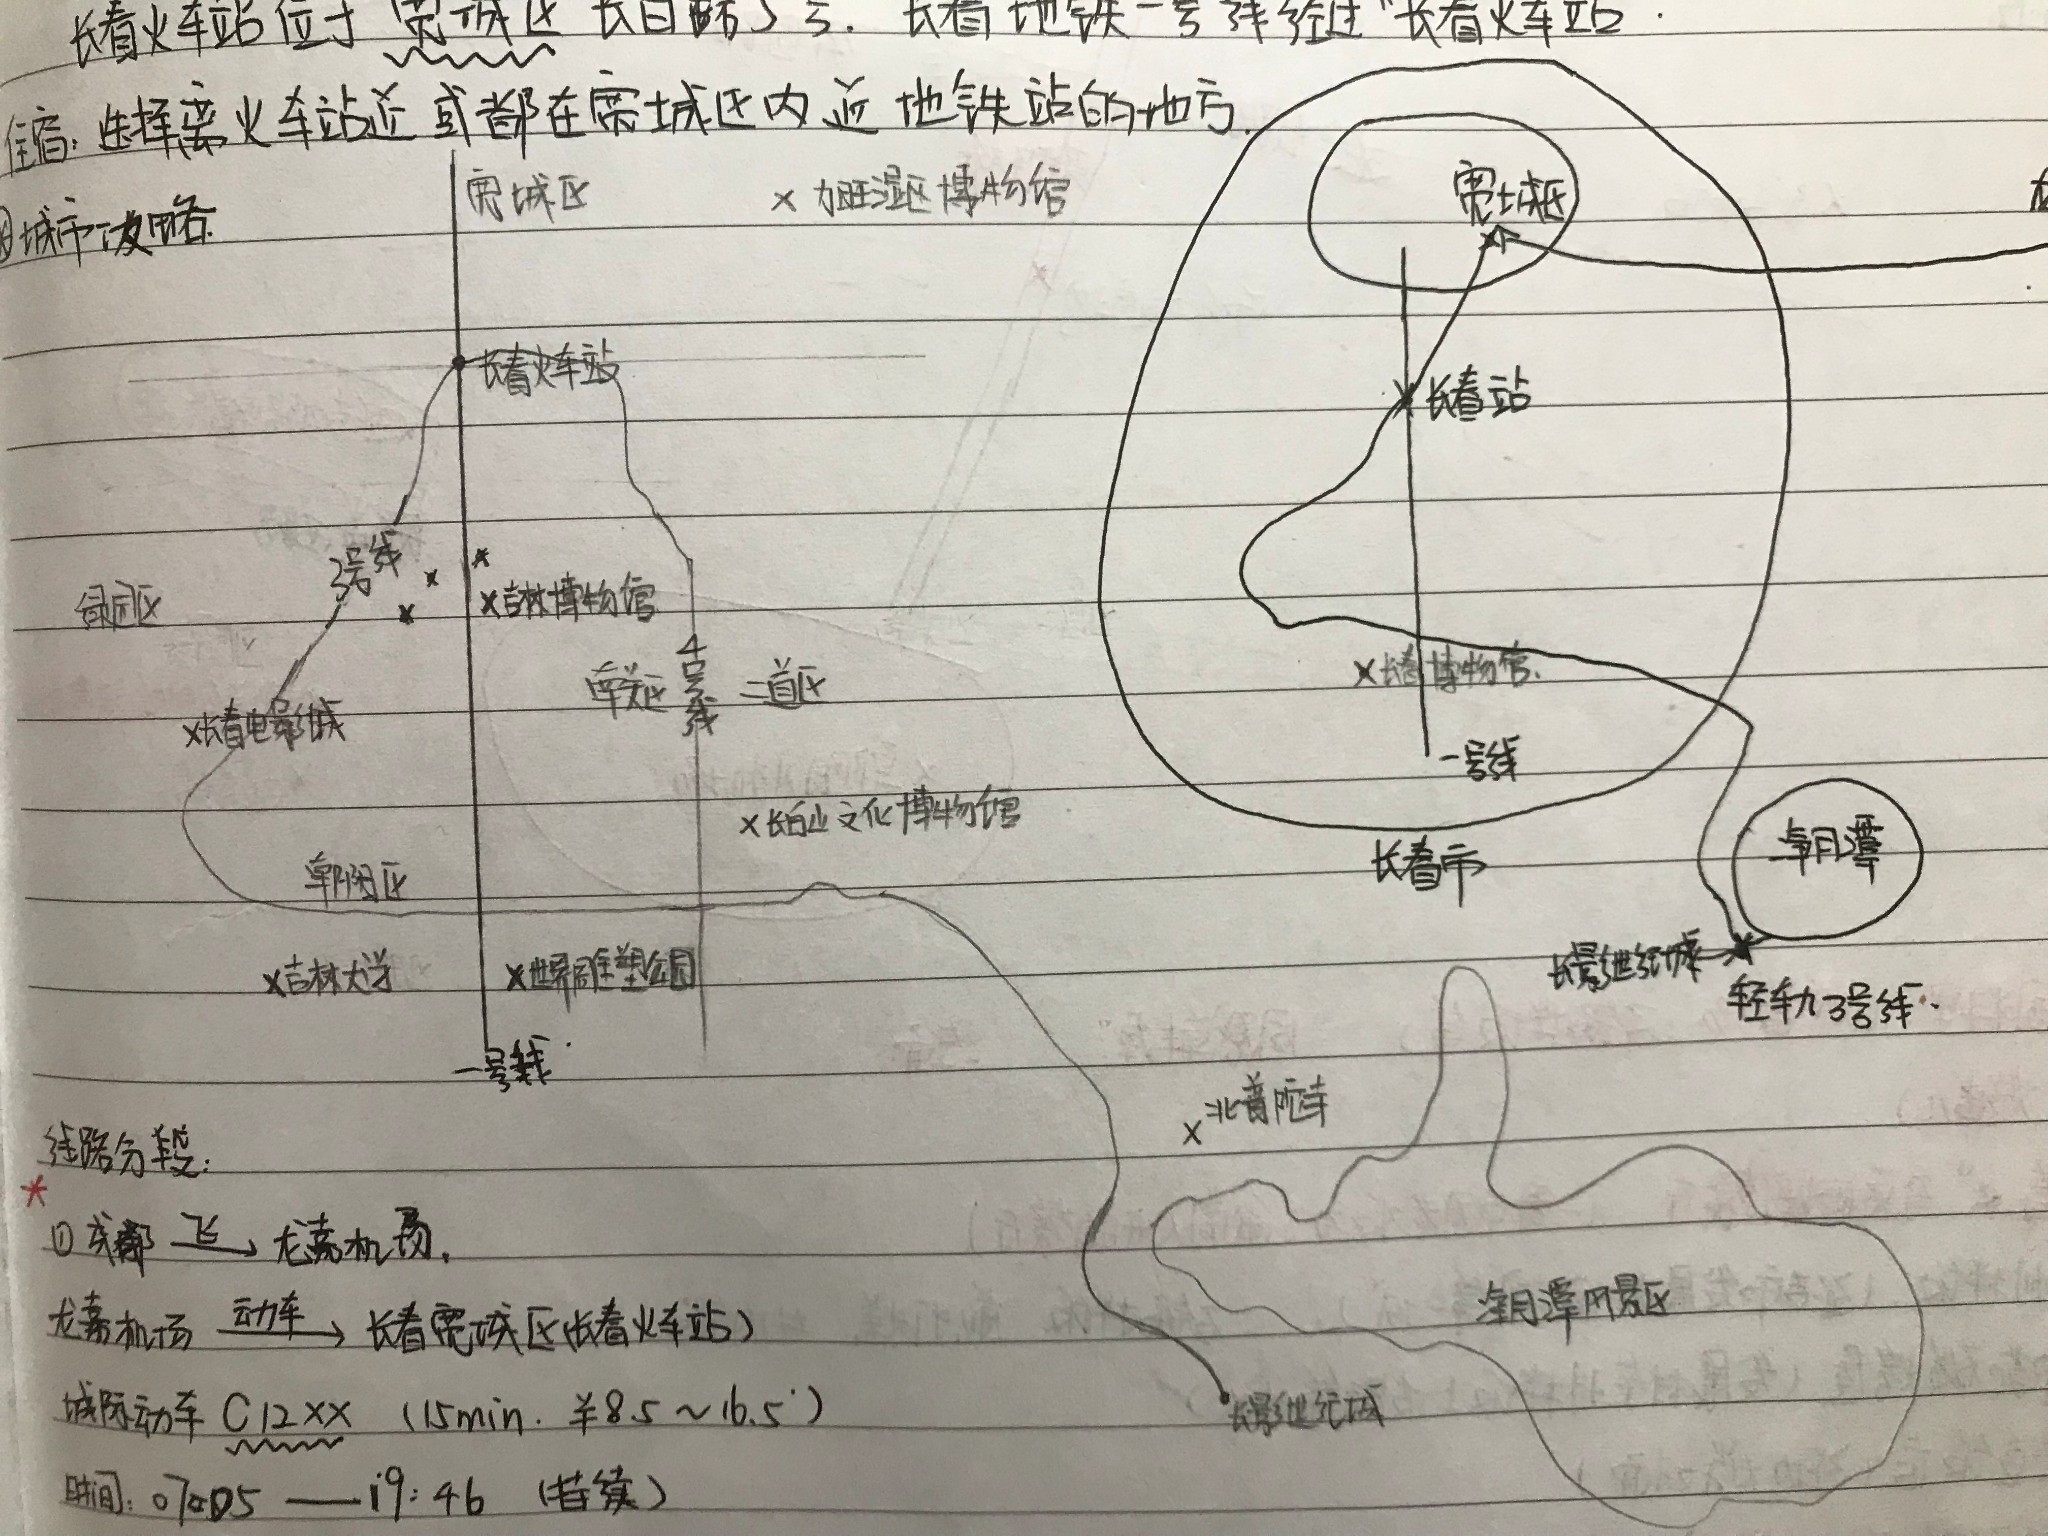 长春火车站位于宽城区长白路5号. 长春地铁一号线经过“长春火车站.
住宿: 选择离火车站近或都在宽城区内近地铁站的地方.
城市攻略.
宽城区
湿区博物馆
宽城区
长春火车站
长春站
3号线
绿园区
吉林博物馆
南关区
4号线
二道区
长春电影城
长春博物馆.
一号线
长白山文化博物馆
长春市
净月潭
朝阳区
吉林大学
世界雕塑公园
长影世纪城
轻轨3号线.
一号线
北普陀寺
线路分段:
① 成都 飞→ 龙嘉机场.
净月潭风景区
龙嘉机场 动车→ 长春宽城区(长春火车站)
城际动车 C12XX (15min. ¥8.5~16.5)
长影世纪城
时间: 07:05 — 19:46 (持续)